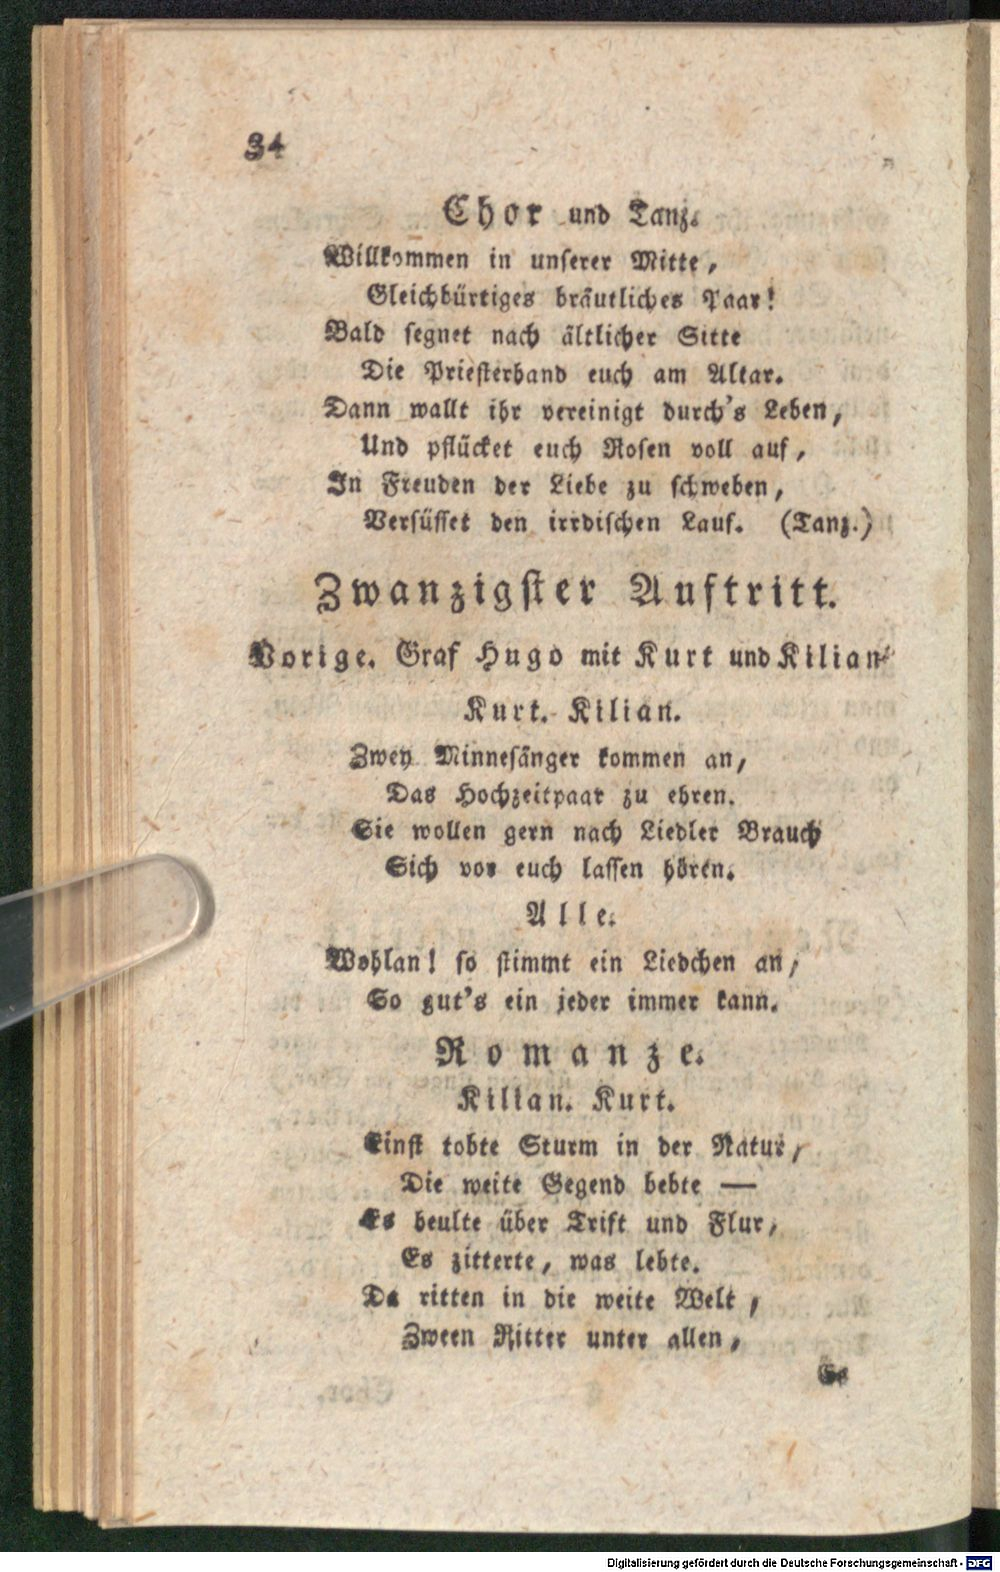 34
Chor und Tanz.
Willkommen in unserer Mitte,
Gleichbürtiges bräutliches Paar!
Bald segnet nach ältlicher Sitte
Die Priesterhand euch am Altar.
Dann wallt ihr vereinigt durch's Leben,
Und pflücket euch Rosen voll auf,
In Freuden der Liebe zu schweben,
Versüsset den irrdischen Lauf. (Tanz.)
Zwanzigster Auftritt.
Vorige. Graf Hugo mit Kurt und Kilian
Kurt. Kilian.
Zwey Minnesänger kommen an,
Das Hochzeitpaar zu ehren.
Sie wollen gern nach Liedler Brauch
Sich vor euch lassen hören.
Alle.
Wohlan! so stimmt ein Liedchen an,
So gut's ein jeder immer kann.
Romanze.
Kilian. Kurt.
Einst tobte Sturm in der Natur,
Die weite Gegend bebte —
Es heulte über Trift und Flur,
Es zitterte, was lebte.
Da ritten in die weite Welt,
Zween Ritter unter allen,
Digitalisierung gefördert durch die Deutsche Forschungsgemeinschaft - DFG